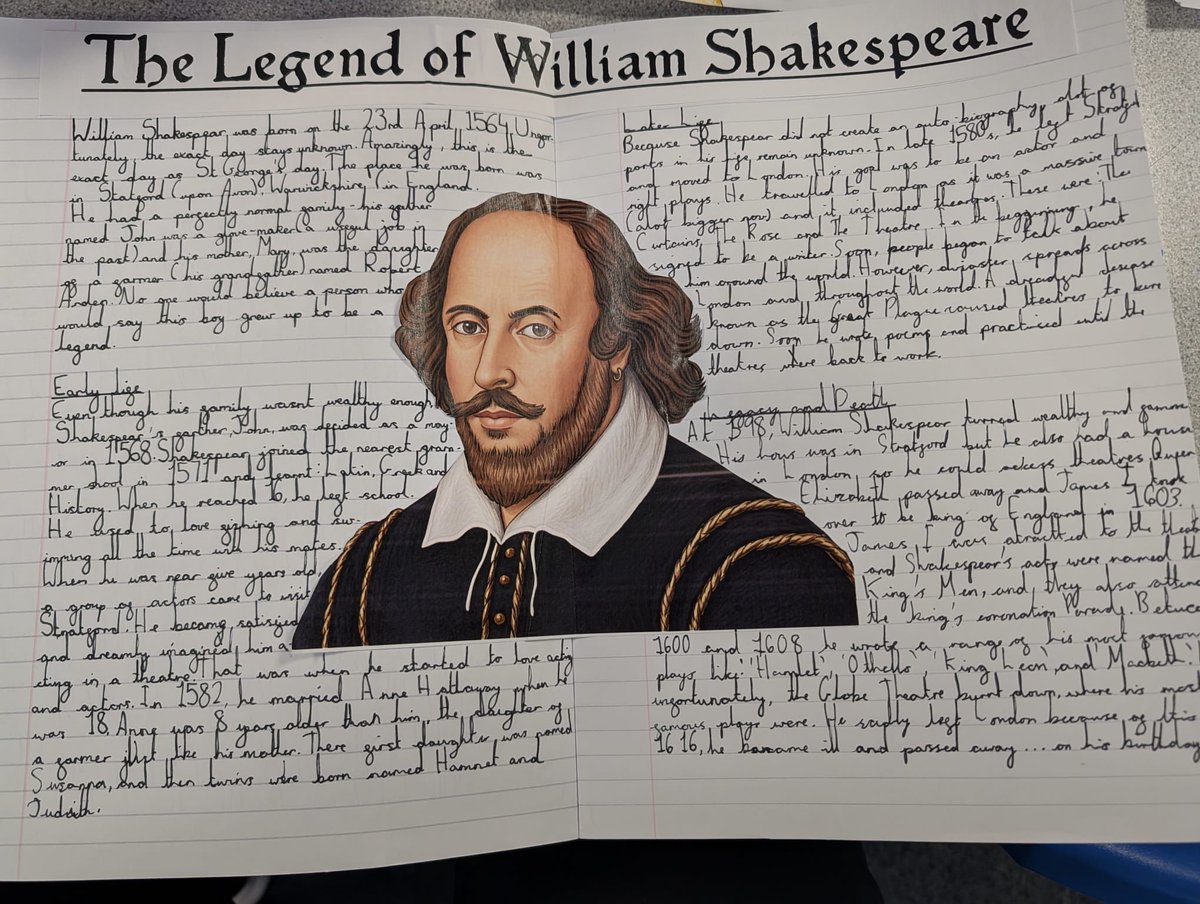 The Legend of William Shakespeare
William Shakespear was born on the 23rd April 1564. Unfor-
tunately, the exact day stays unknown. Amazingly, this is the
exact day as St George's day. The place he was born was
in Statford (upon Avon), Warwickshire (in England.
He had a perfectly normal family- his father
named John was a glove-maker(a useful job in
the past) and his mother, Mary, was the daughter
of a farmer (his grandfather) named Robert
Arden. No one would believe a person who
would say this boy grew up to be a
legend.
Early Life
Even though his family wasnt wealthy enough,
Shakespear's farther, John, was decided as a may-
or in 1568. Shakespear joined the nearest gram-
mer shool in 1571 and learnt: Latin, Greek and
History. When he reached 16, he left school.
He used to love fishing and sw-
imming all the time with his mates.
When he was near five years old,
a group of actors came to visit
Stratford. He became satisfied
and dreamly imagined him a
cting in a theatre. That was when he started to love acting
and actors. In 1582, he married Anne Hathaway when he
was 18. Anne was 8 years older than him, the daughter of
a farmer just like his mother. There first daughter was named
Suzanna, and then twins were born named Hamnet and
Judith.
Later Life
Because Shakespear did not create an auto-biography, alot of
parts in his life remain unknown. In late 1580s, he left Stratford
and moved to London. His goal was to be an actor and
right plays. He travelled to London as it was a massive town
(alot bigger now) and it included theatres. These were: The
Curtains, The Rose and The Theatre. In the beggining, he
signed to be a writer. Soon, people began to talk about
him around the world. However, disaster spreads across
London and throughout the world. A dreadful desease
known as the great Plague caused theatres to
down. Soon he wrote poems and practiced until the
theatres where back to work.
Legacy and Death
At 1598, William Shakespear turned wealthy and famous.
His hous was in Stratford but he also had a house
in London so he could access theatres. Queen
Elizabeth passed away and James I took
over to be king of England in 1603.
James I was attracted to the
and Shakespear's acts were named the
King's Men, and they also
the king's coronation Parade. Between
1600 and 1608, he wrote a range of his most famous
plays like: 'Hamlet', 'Othello' 'King Lear' and 'Macbeth'.
unfortunately, the Globe Theatre burnt down, where his most
famous plays were. He left London because of this.
1616, he became ill and passed away... on his birthday